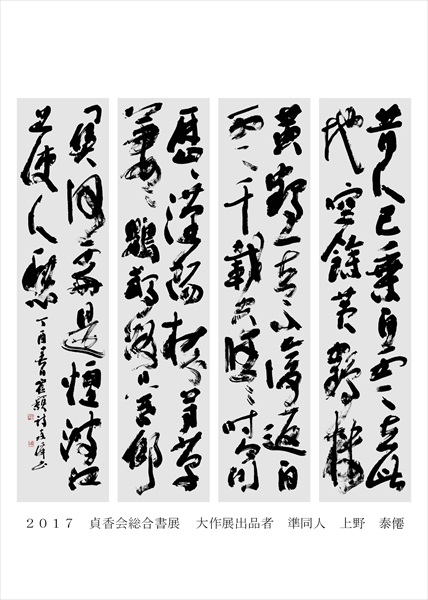 昔人已乗白雲去此
地空餘黄鶴樓
黄鶴一去不復返白
雲千載空悠々晴川
歴々漢陽樹芳草
萋々鸚鵡洲日暮郷
関何處是煙波江
上使人愁 丁酉春日崔顥詩
2017 貞香会総合書展 大作展出品者 準同人 上野 泰僊